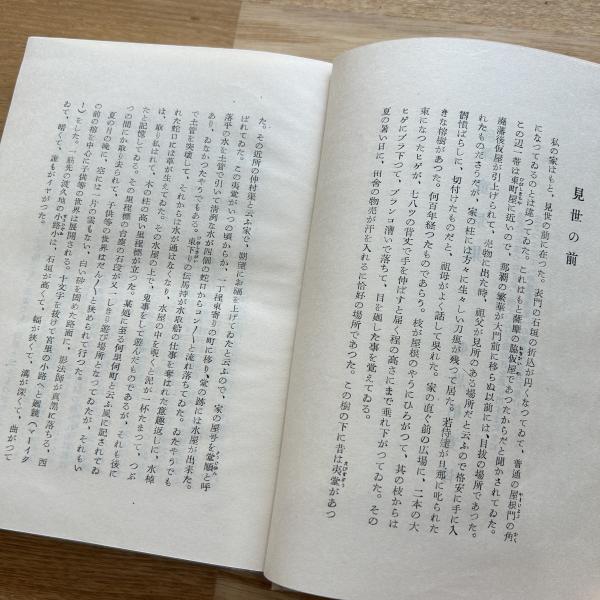 見世の前
私の家はもと、見世の前に在つた。表門の石垣の折込が円くなつてゐて、普通の屋根門の角
になつてゐるのとは違つてゐた。これはもと薩摩の脇仮屋であつたからだと聞かされてゐた。
この辺一帯は東町屋に近いので、那覇の繁華が大門前に移らぬ以前には、目抜の場所であつた。
廃藩後仮屋が引上げられて、売物に出た時、祖父が見所のある場所だと云ふので格安に手に入
れたものださうだが、家の柱には方々に生々しい刀痕が残つて居た。若侍達が旦那に叱られた
鬱憤ばらしに、切付けたものだと、祖母がよく話して呉れた。家の直ぐ前の広場に、二本の大
きな榕樹があつた。何百年経つたものであらう。枝が屋根のやうにひろがつて、其の枝からは
束になつたヒゲが、七八ツの背丈で手を伸ばすと届く程の高さにまで垂れ下がつてゐた。その
ヒゲにブラ下つて、ブランコ漕いで落ちて、目を廻した事を覚えてゐる。
夏の暑い日に、田舎の物売が汗を入れるに恰好の場所であつた。この樹の下に昔は夷堂があつ
た。その近所の仲村渠と云ふ家で、朝晩にお福を上げてゐたと云ふので、家の屋号を堂順と呼
ばれてゐた。この夷堂がいつの頃からか、一丁程東寄りの町に移り、堂の跡には水屋が出来た。
落平の水を土管で引いて清冽な水が四個の蛇口からコンノ＼と流れ落ちてゐた。ゐたさうでも
あり、ゐなかつたさうでもある。東下りの伝馬持が水取船の仕事を奪はれた意趣返しに、水樋
で土管を突壊して、それからは水が通はなくなり、水屋の中を覗くと泥が一杯たまつて、つぶ
れた蛇口には草が生えてゐた。その水屋の上で、鬼事をして遊んだものであるが、それも後に
は、取り払はれて、木の柱の高い里程標が立つた。某処に至る何里何町と云ふ風に記されてゐ
たと記憶してゐる。その里程標の台座の石段が又一しきり遊び場所となつてゐたが、それもい
つの間にか取り去られて、子供等の世界はだんノ＼と狭められて行つた。
夏の月の晩に、空には一片の雲もない、白い砂を固めた路面に、影法師が真黒に落ちる、西
の前の榕を中心に子供等の世界は展開される。十文字を抜けて宮里の小路へと廻鏡（ヤーイダ
ー）をした。一筋先の渡久地の小路小は、石垣が高くて、幅が狭くて、溝が深くて、曲がつて
ゐて、暗くて、誰もがイヤがつた。